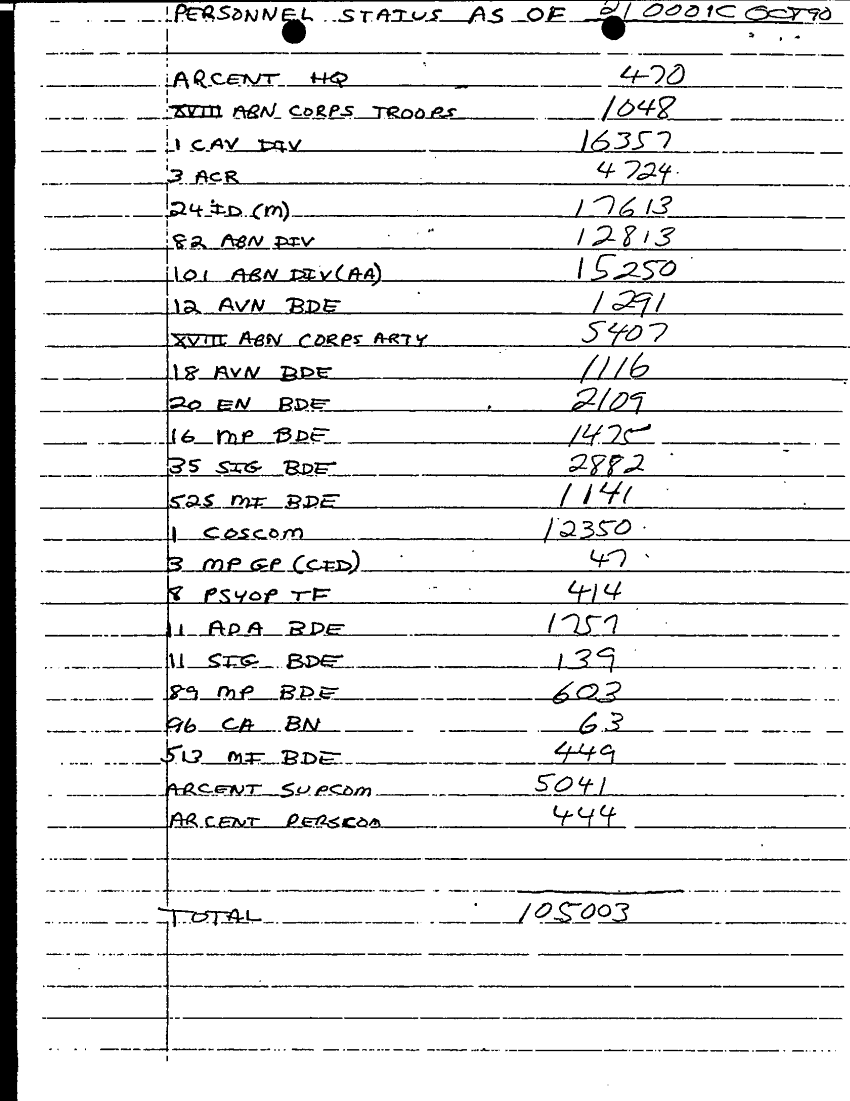 PERSONNEL STATUS AS OF 210001C OCT 90
ARCENT HQ 470
XVIII ABN CORPS TROOPS 1048
1 CAV DIV 16357
3 ACR 4724
24 ID (M) 17613
82 ABN DIV 12813
101 ABN DIV (AA) 15250
12 AVN BDE 1291
XVIII ABN CORPS ARTY 5407
18 AVN BDE 1116
20 EN BDE 2109
16 MP BDE 1475
35 SIG BDE 2882
525 MI BDE 1141
1 COSCOM 12350
3 MP GP (CID) 47
8 PSYOP TF 414
11 ADA BDE 1757
11 SIG BDE 139
89 MP BDE 603
96 CA BN 63
513 MI BDE 449
ARCENT SUPCOM 5041
ARCENT PERSCOM 444
TOTAL 105003